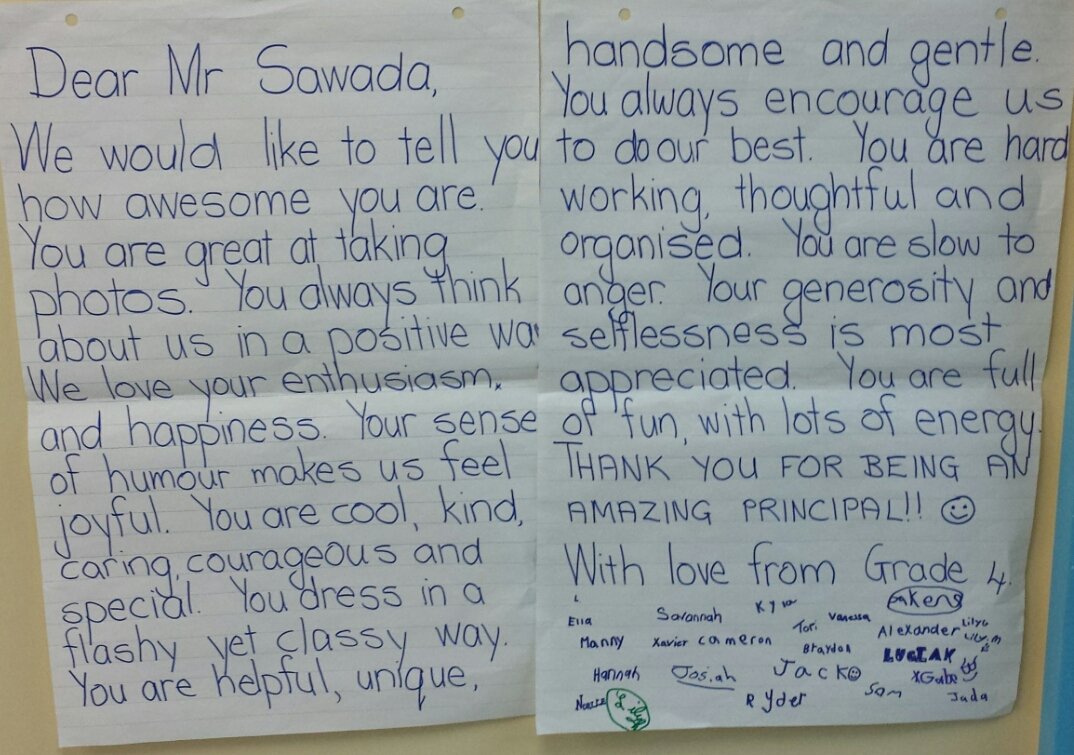 Dear Mr Sawada,
We would like to tell you
how awesome you are.
You are great at taking
photos. You always think
about us in a positive wa
We love your enthusiasm.
and happiness. Your sense
of humour makes us feel
joyful. You are cool, kind,
caring, courageous and
special. You dress in a
flashy yet classy way.
You are helpful, unique,
handsome and gentle.
You always encourage us
to do our best. You are hard
working, thoughtful and
organised. You are slow to
anger. Your generosity and
selflessness is most
appreciated. You are full
of fun, with lots of energy.
THANK YOU FOR BEING AN
AMAZING PRINCIPAL!! ☺
With love from Grade 4.
Ella Savannah Tori Vanessa Alexander
Manny Xavier cameron Braydon
Hannah Josiah Jack XGabe
Ryder Sam Jada